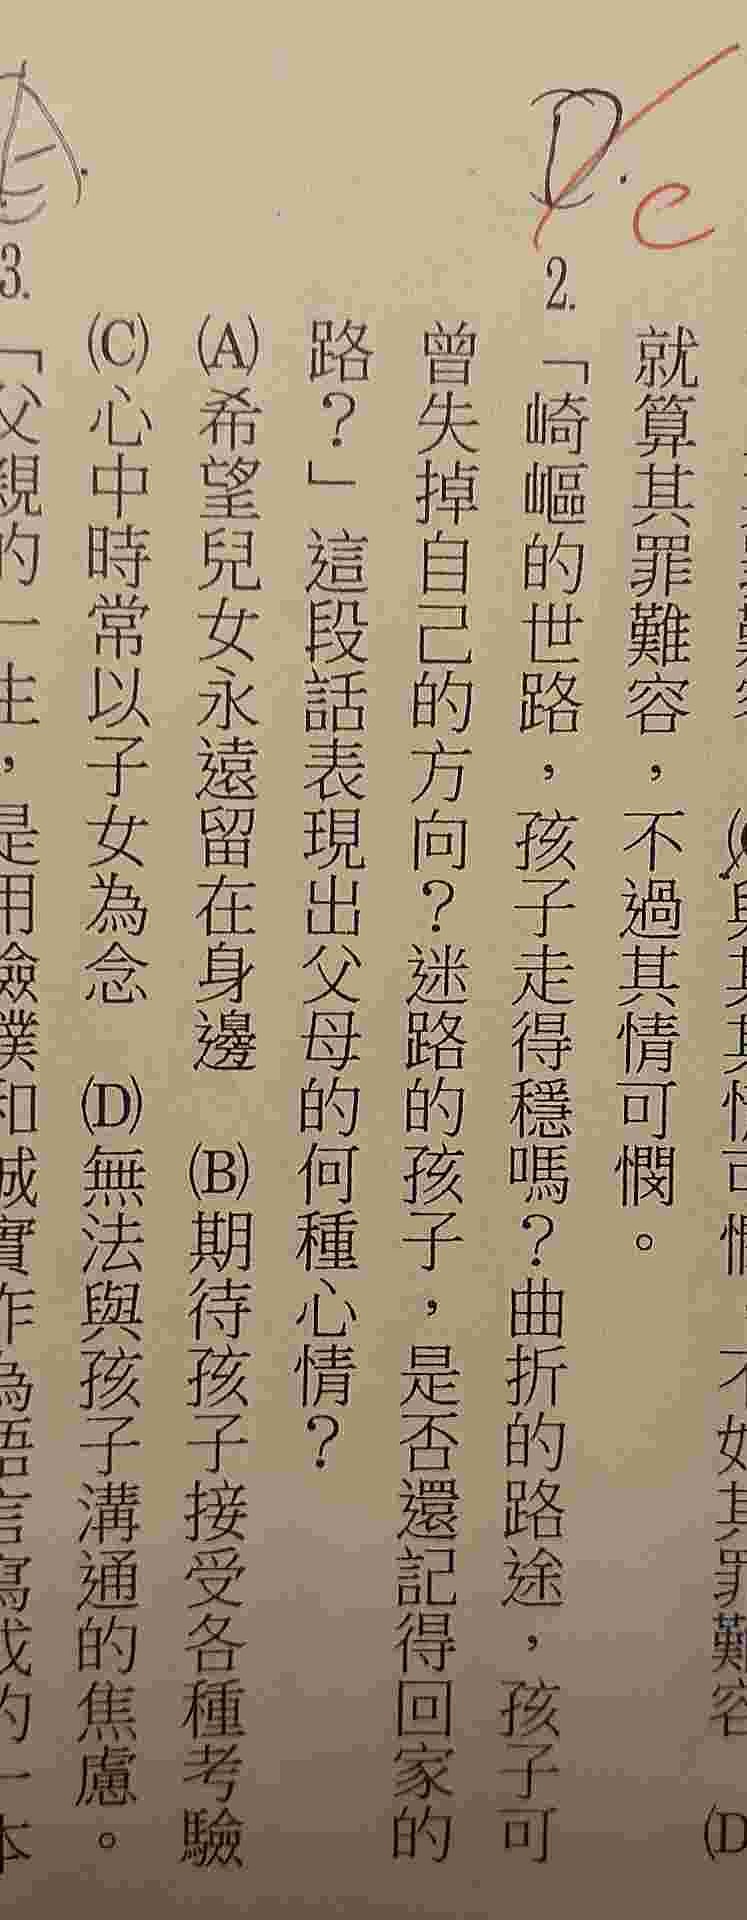 就算其罪難容，不過其情可憫。
D. C
2.「崎嶇的世路，孩子走得穩嗎？曲折的路途，孩子可
曾失掉自己的方向？迷路的孩子，是否還記得回家的
路？」這段話表現出父母的何種心情？
(A)希望兒女永遠留在身邊　(B)期待孩子接受各種考驗
(C)心中時常以子女為念　(D)無法與孩子溝通的焦慮。
3.「父親的一生，是用儉樸和誠實作為語言寫成的一本